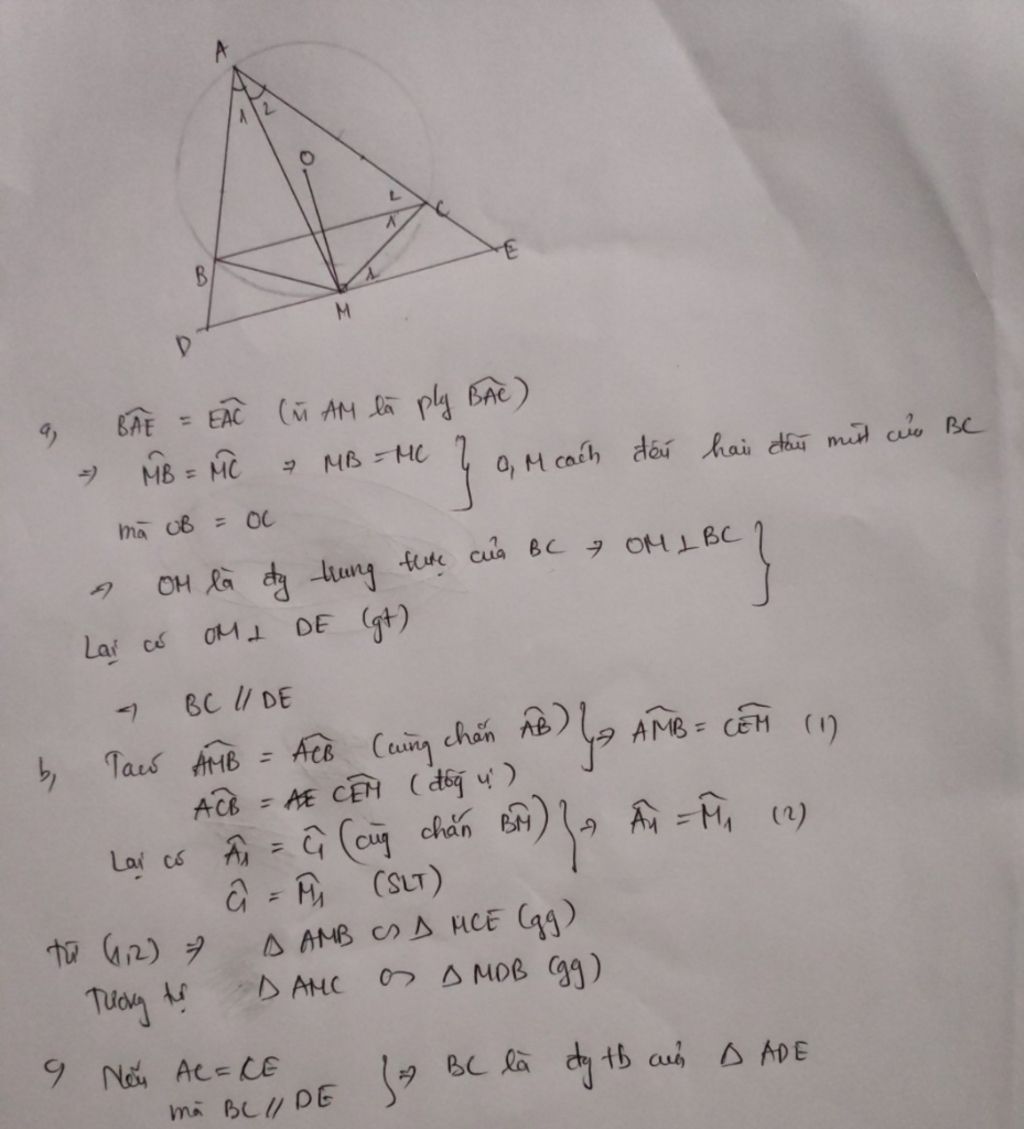 A
1 2
O
2
1
C
E
B
1
M
D
a, BAE = EAC (vì AM là plg BAC)
=> MB = MC => MB = MC } O, M cách đều hai đầu mút của BC
mà OB = OC
=> OM là đg trung trực của BC => OM ⊥ BC }
Lại có OM ⊥ DE (gt)
=> BC // DE
b, Ta có AMB = ACB (cùng chắn AB) } => AMB = CEM (1)
ACB = CEM (đồg vị)
Lại có A1 = C1 (cùg chắn BM) } => A1 = M1 (2)
C1 = M1 (SLT)
Từ (1,2) => Δ AMB ∽ Δ MCE (gg)
Tương tự Δ AMC ∽ Δ MDB (gg)
c, Nếu AC = CE } => BC là đg tb của Δ ADE
mà BC // DE